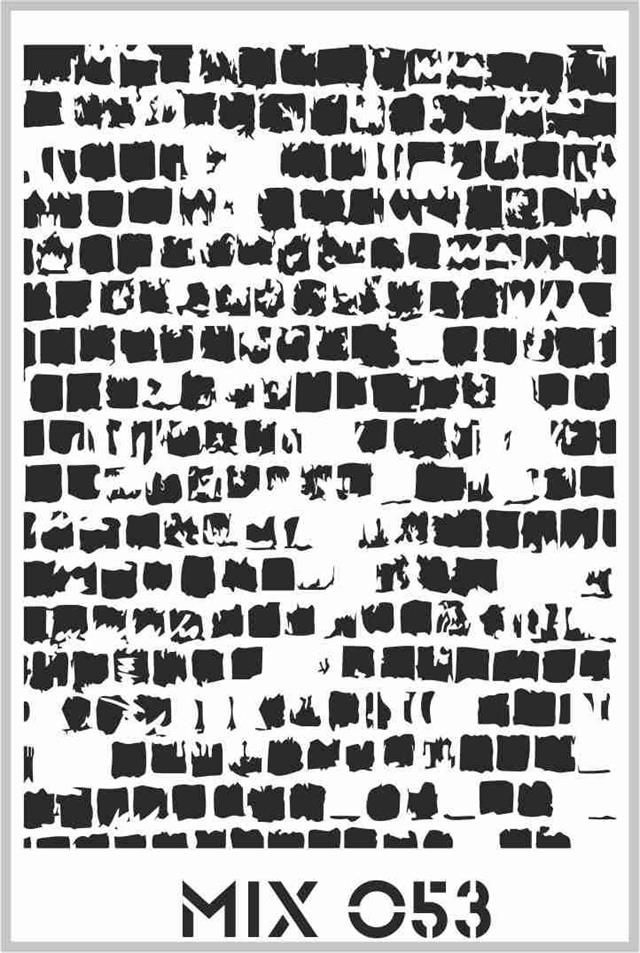 MIX 053